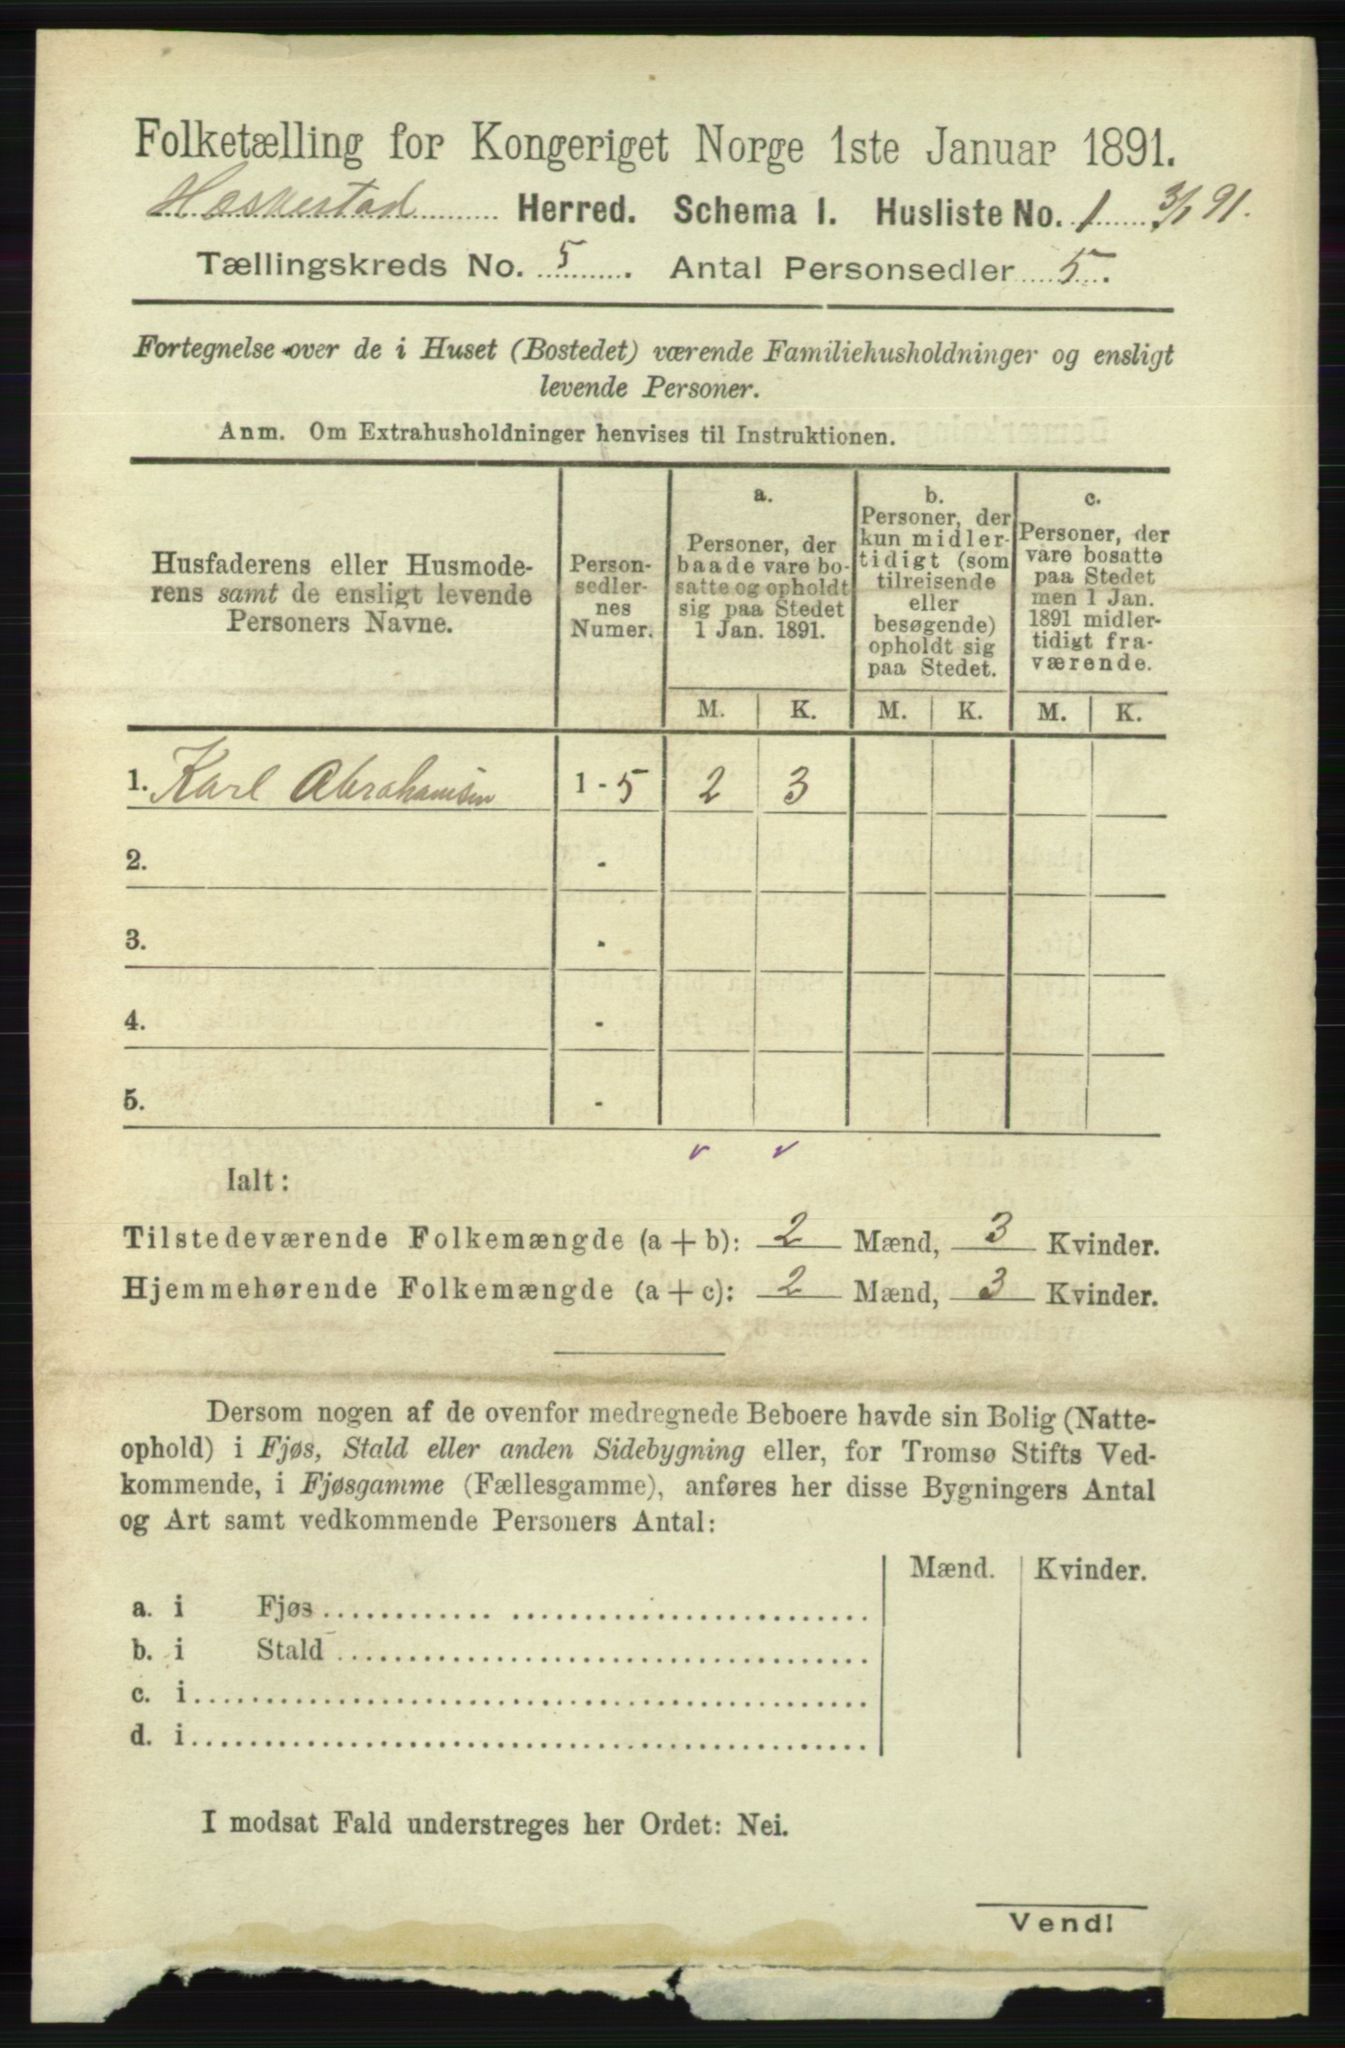 Folketælling for Kongeriget Norge 1ste Januar 1891.
Heskestad Herred. Schema I. Husliste No. 1 3/1 91.
Tællingskreds No. 5. Antal Personsedler 5.
Fortegnelse over de i Huset (Bostedet) værende Familiehusholdninger og ensligt
levende Personer.
Anm. Om Extrahusholdninger henvises til Instruktionen.
Husfaderens eller Husmode-
rens samt de ensligt levende
Personers Navne.
Person-
sedler-
nes
Numer.
a.
Personer, der
baade vare bo-
satte og opholdt
sig paa Stedet
1 Jan. 1891.
b.
Personer, der
kun midler-
tidigt (som
tilreisende
eller
besøgende)
opholdt sig
paa Stedet.
c.
Personer, der
vare bosatte
paa Stedet
men 1 Jan.
1891 midler-
tidigt fra-
værende.
M. K. M. K. M. K.
1. Karl Abrahamsen 1 - 5 2 3
2. -
3. -
4. -
5. -
Ialt:
Tilstedeværende Folkemængde (a + b): 2 Mænd, 3 Kvinder.
Hjemmehørende Folkemængde (a + c): 2 Mænd, 3 Kvinder.
Dersom nogen af de ovenfor medregnede Beboere havde sin Bolig (Natte-
ophold) i Fjøs, Stald eller anden Sidebygning eller, for Tromsø Stifts Ved-
kommende, i Fjøsgamme (Fællesgamme), anføres her disse Bygningers Antal
og Art samt vedkommende Personers Antal:
Mænd. Kvinder.
a. i Fjøs
b. i Stald
c. i
d. i
I modsat Fald understreges her Ordet: Nei.
Vend!